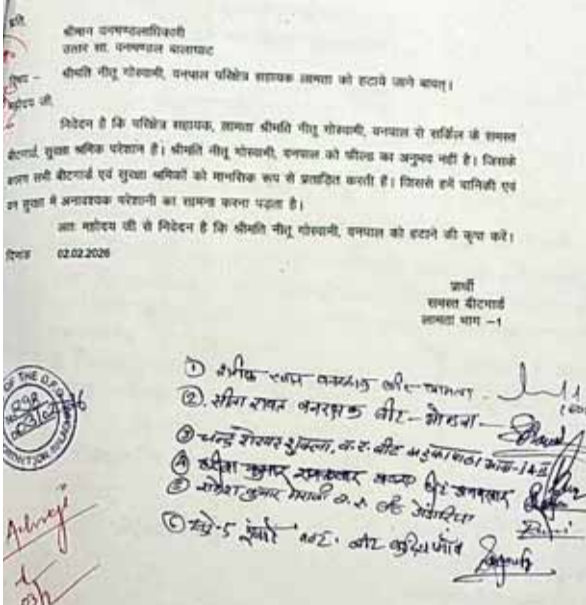 प्रति,
श्रीमान वनमण्डलाधिकारी
उत्तर सा. वनमण्डल बालाघाट
विषय – श्रीमति नीतू गोस्वामी, वनपाल परिक्षेत्र सहायक लामता को हटाये जाने बावत्।
महोदय जी,
निवेदन है कि परिक्षेत्र सहायक, लामता श्रीमति नीतू गोस्वामी, वनपाल से सर्किल के समस्त
बीटगार्ड, सुरक्षा श्रमिक परेशान है। श्रीमति नीतू गोस्वामी, वनपाल को फील्ड का अनुभव नहीं है। जिसके
कारण सभी बीटगार्ड एवं सुरक्षा श्रमिकों को मानसिक रूप से प्रताड़ित करती है। जिससे हमें वानिकी एवं
वन सुरक्षा में अनावश्यक परेशानी का सामना करना पड़ता है।
अतः महोदय जी से निवेदन है कि श्रीमति नीतू गोस्वामी, वनपाल को हटाने की कृपा करें।
दिनांक 02.02.2026
प्रार्थी
समस्त बीटगार्ड
लामता भाग –1
① वनरक्षक बीट - लामता
②. सीमा रावत वनरक्षक बीट –
③ चन्द्र शेखर शुक्ला, व.र. बीट
④ कुमार बीट
⑤ कुमार व.र. बीट
⑥ बीट
OF THE D.F.O.